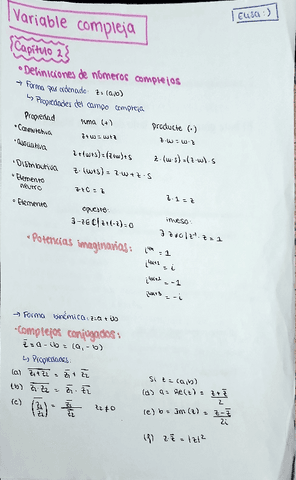 Variable compleja
Elisa :)
Capítulo 1
• Definiciones de números complejos
→ Forma par ordenado: z = (a,b)
↳ Propiedades del campo complejo
Propiedad suma (+) producto (·)
• Conmutativa z+w = w+z z·w = w·z
• Asociativa z+(w+s) = (z+w)+s z·(w·s) = (z·w)·s
• Distributiva z·(w+s) = z·w + z·s
• Elemento neutro z+0 = z z·1 = z
• Elemento opuesto: inverso:
∃ -z∈ℂ | z+(-z) = 0 ∃ z≠0 | z⁻¹·z = 1
• Potencias imaginarias:
i⁴ⁿ = 1
i⁴ⁿ⁺¹ = i
i⁴ⁿ⁺² = -1
i⁴ⁿ⁺³ = -i
→ Forma binómica: z = a + ib
• Complejos conjugados:
z̅ = a - ib = (a, -b)
↳ Propiedades:
Si z = (a,b)
(a) \overline{z₁+z₂} = z̅₁ + z̅₂
(d) a = Re(z) = (z+z̅)/2
(b) \overline{z₁·z₂} = z̅₁ · z̅₂
(c) \overline{(z₁/z₂)} = z̅₁/z̅₂ z₂ ≠ 0
(e) b = Im(z) = (z-z̅)/2i
(f) z z̅ = |z|²